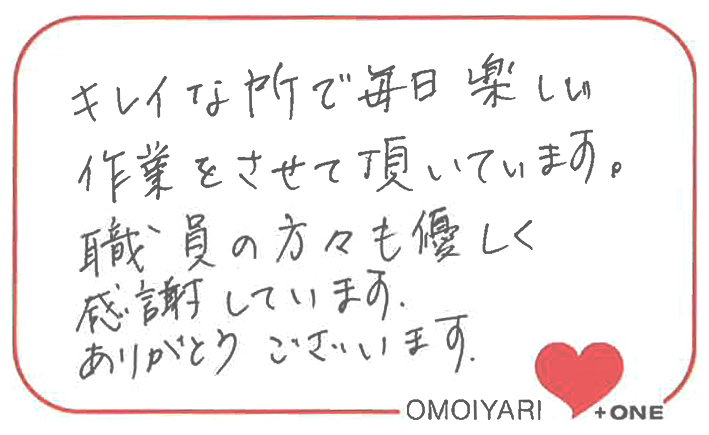 キレイな所で毎日楽しい
作業をさせて頂いています。
職員の方々も優しく
感謝しています.
ありがとうございます.
OMOIYARI +ONE